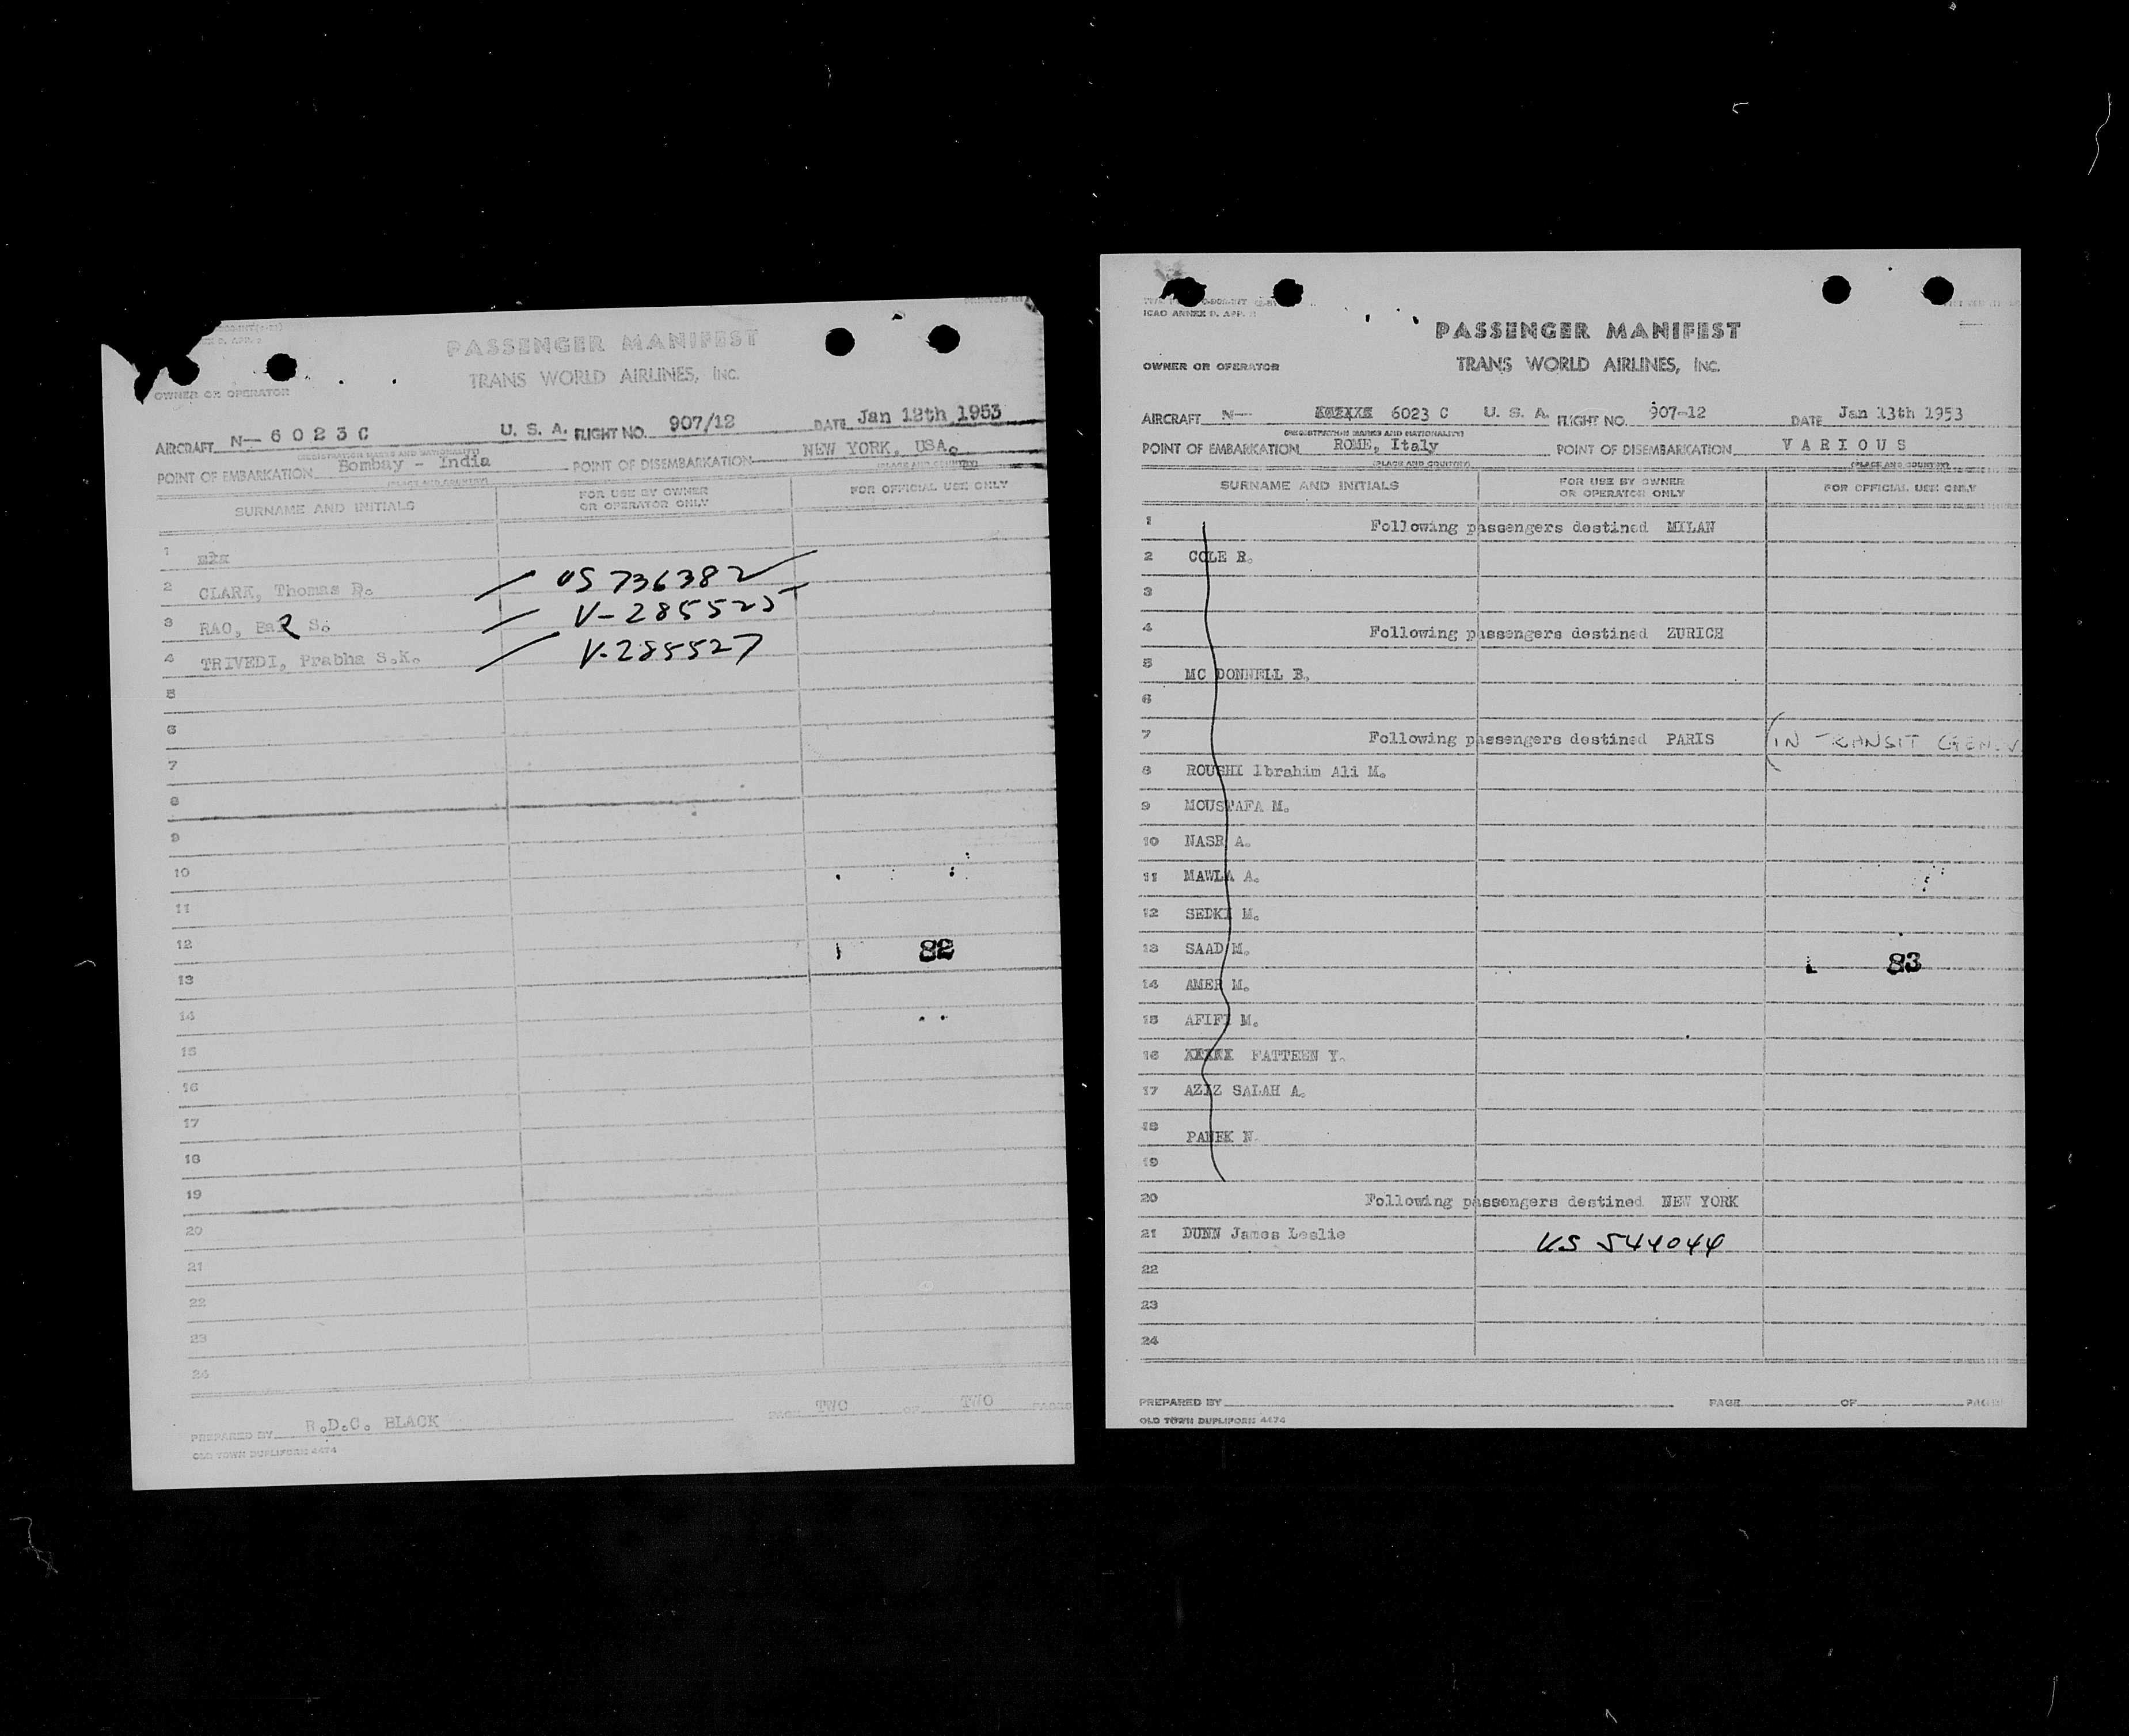 PASSENGER MANIFEST
TRANS WORLD AIRLINES, INC.
OWNER OR OPERATOR
AIRCRAFT N- 6 0 2 3 C U. S. A. FLIGHT NO. 907/12 DATE Jan 12th 1953
(REGISTRATION MARKS AND NATIONALITY)
POINT OF EMBARKATION Bombay - India POINT OF DISEMBARKATION NEW YORK, USA.
(PLACE AND COUNTRY) (PLACE AND COUNTRY)
SURNAME AND INITIALS FOR USE BY OWNER OR OPERATOR ONLY FOR OFFICIAL USE ONLY
1
2 CLARK, Thomas D. US 736382
3 RAO, S. V-285525
4 TRIVEDI, Prabha S.K. V-285527
5
6
7
8
9
10
11
12 82
13
14
15
16
17
18
19
20
21
22
23
24
PREPARED BY R.D.C. BLACK PAGE TWO OF TWO PAGES
OLD TOWN DUPLIFORM 4474
ICAO ANNEX 9, APP. 2
PASSENGER MANIFEST
OWNER OR OPERATOR TRANS WORLD AIRLINES, INC.
AIRCRAFT N- 6023 C U. S. A. FLIGHT NO. 907-12 DATE Jan 13th 1953
(REGISTRATION MARKS AND NATIONALITY)
POINT OF EMBARKATION ROME, Italy POINT OF DISEMBARKATION V A R I O U S
(PLACE AND COUNTRY) (PLACE AND COUNTRY)
SURNAME AND INITIALS FOR USE BY OWNER OR OPERATOR ONLY FOR OFFICIAL USE ONLY
1 Following passengers destined MILAN
2 COLE R.
3
4 Following passengers destined ZURICH
5 MC DONNELL B.
6
7 Following passengers destined PARIS (IN TRANSIT
8 ROUSHI Ibrahim Ali M.
9 MOUSTAFA M.
10 NASR A.
11 MAWLA A.
12 SEDKI M.
13 SAAD M. 83
14 AMER M.
15 AFIFI M.
16 XXXXX FATTEEN Y.
17 AZIZ SALAH A.
18 PANEK N.
19
20 Following passengers destined NEW YORK
21 DUNN James Leslie US 544044
22
23
24
PREPARED BY PAGE OF PAGES
OLD TOWN DUPLIFORM 4474